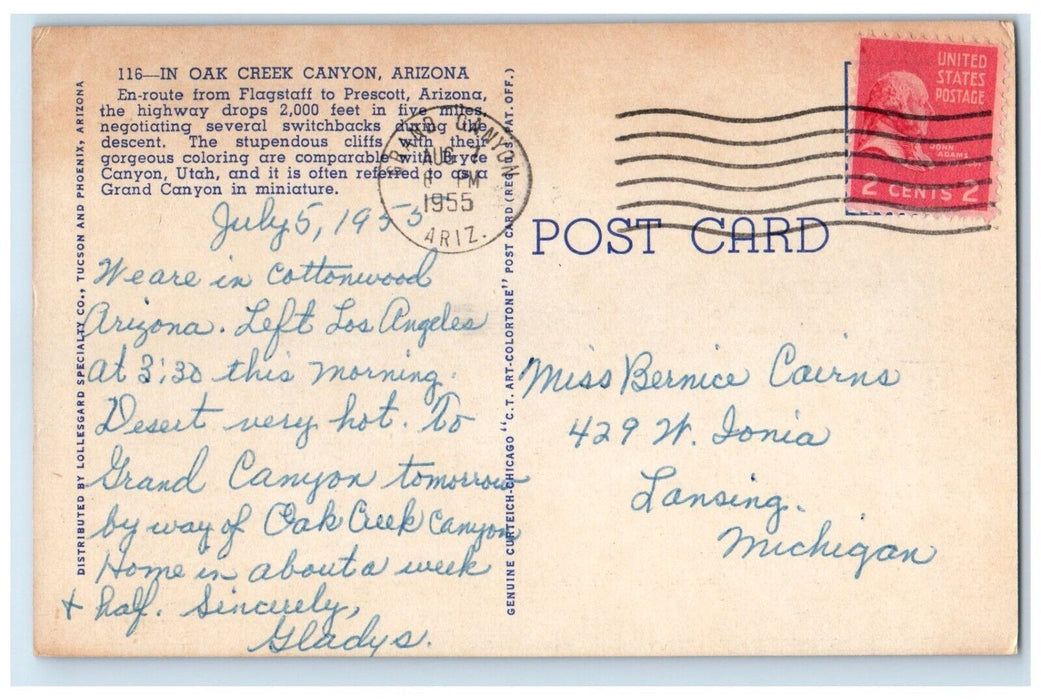 116—IN OAK CREEK CANYON, ARIZONA
En-route from Flagstaff to Prescott, Arizona,
the highway drops 2,000 feet in five miles,
negotiating several switchbacks during the
descent. The stupendous cliffs with their
gorgeous coloring are comparable with Bryce
Canyon, Utah, and it is often referred to as a
Grand Canyon in miniature.
July 5, 1955
We are in Cottonwood
Arizona. Left Los Angeles
at 3:30 this morning.
Desert very hot. To
Grand Canyon tomorrow
by way of Oak Creek Canyon
Home in about a week
+ half. Sincerely,
Gladys.
DISTRIBUTED BY LOLLESGARD SPECIALTY CO., TUCSON AND PHOENIX, ARIZONA
GENUINE CURTEICH-CHICAGO "C.T. ART-COLORTONE" POST CARD (REG. U.S. PAT. OFF.)
GRAND CANYON
AUG
PM
1955
ARIZ.
UNITED
STATES
POSTAGE
JOHN
ADAMS
2 CENTS 2
POST CARD
Miss Bernice Cairns
429 W. Ionia
Lansing.
Michigan